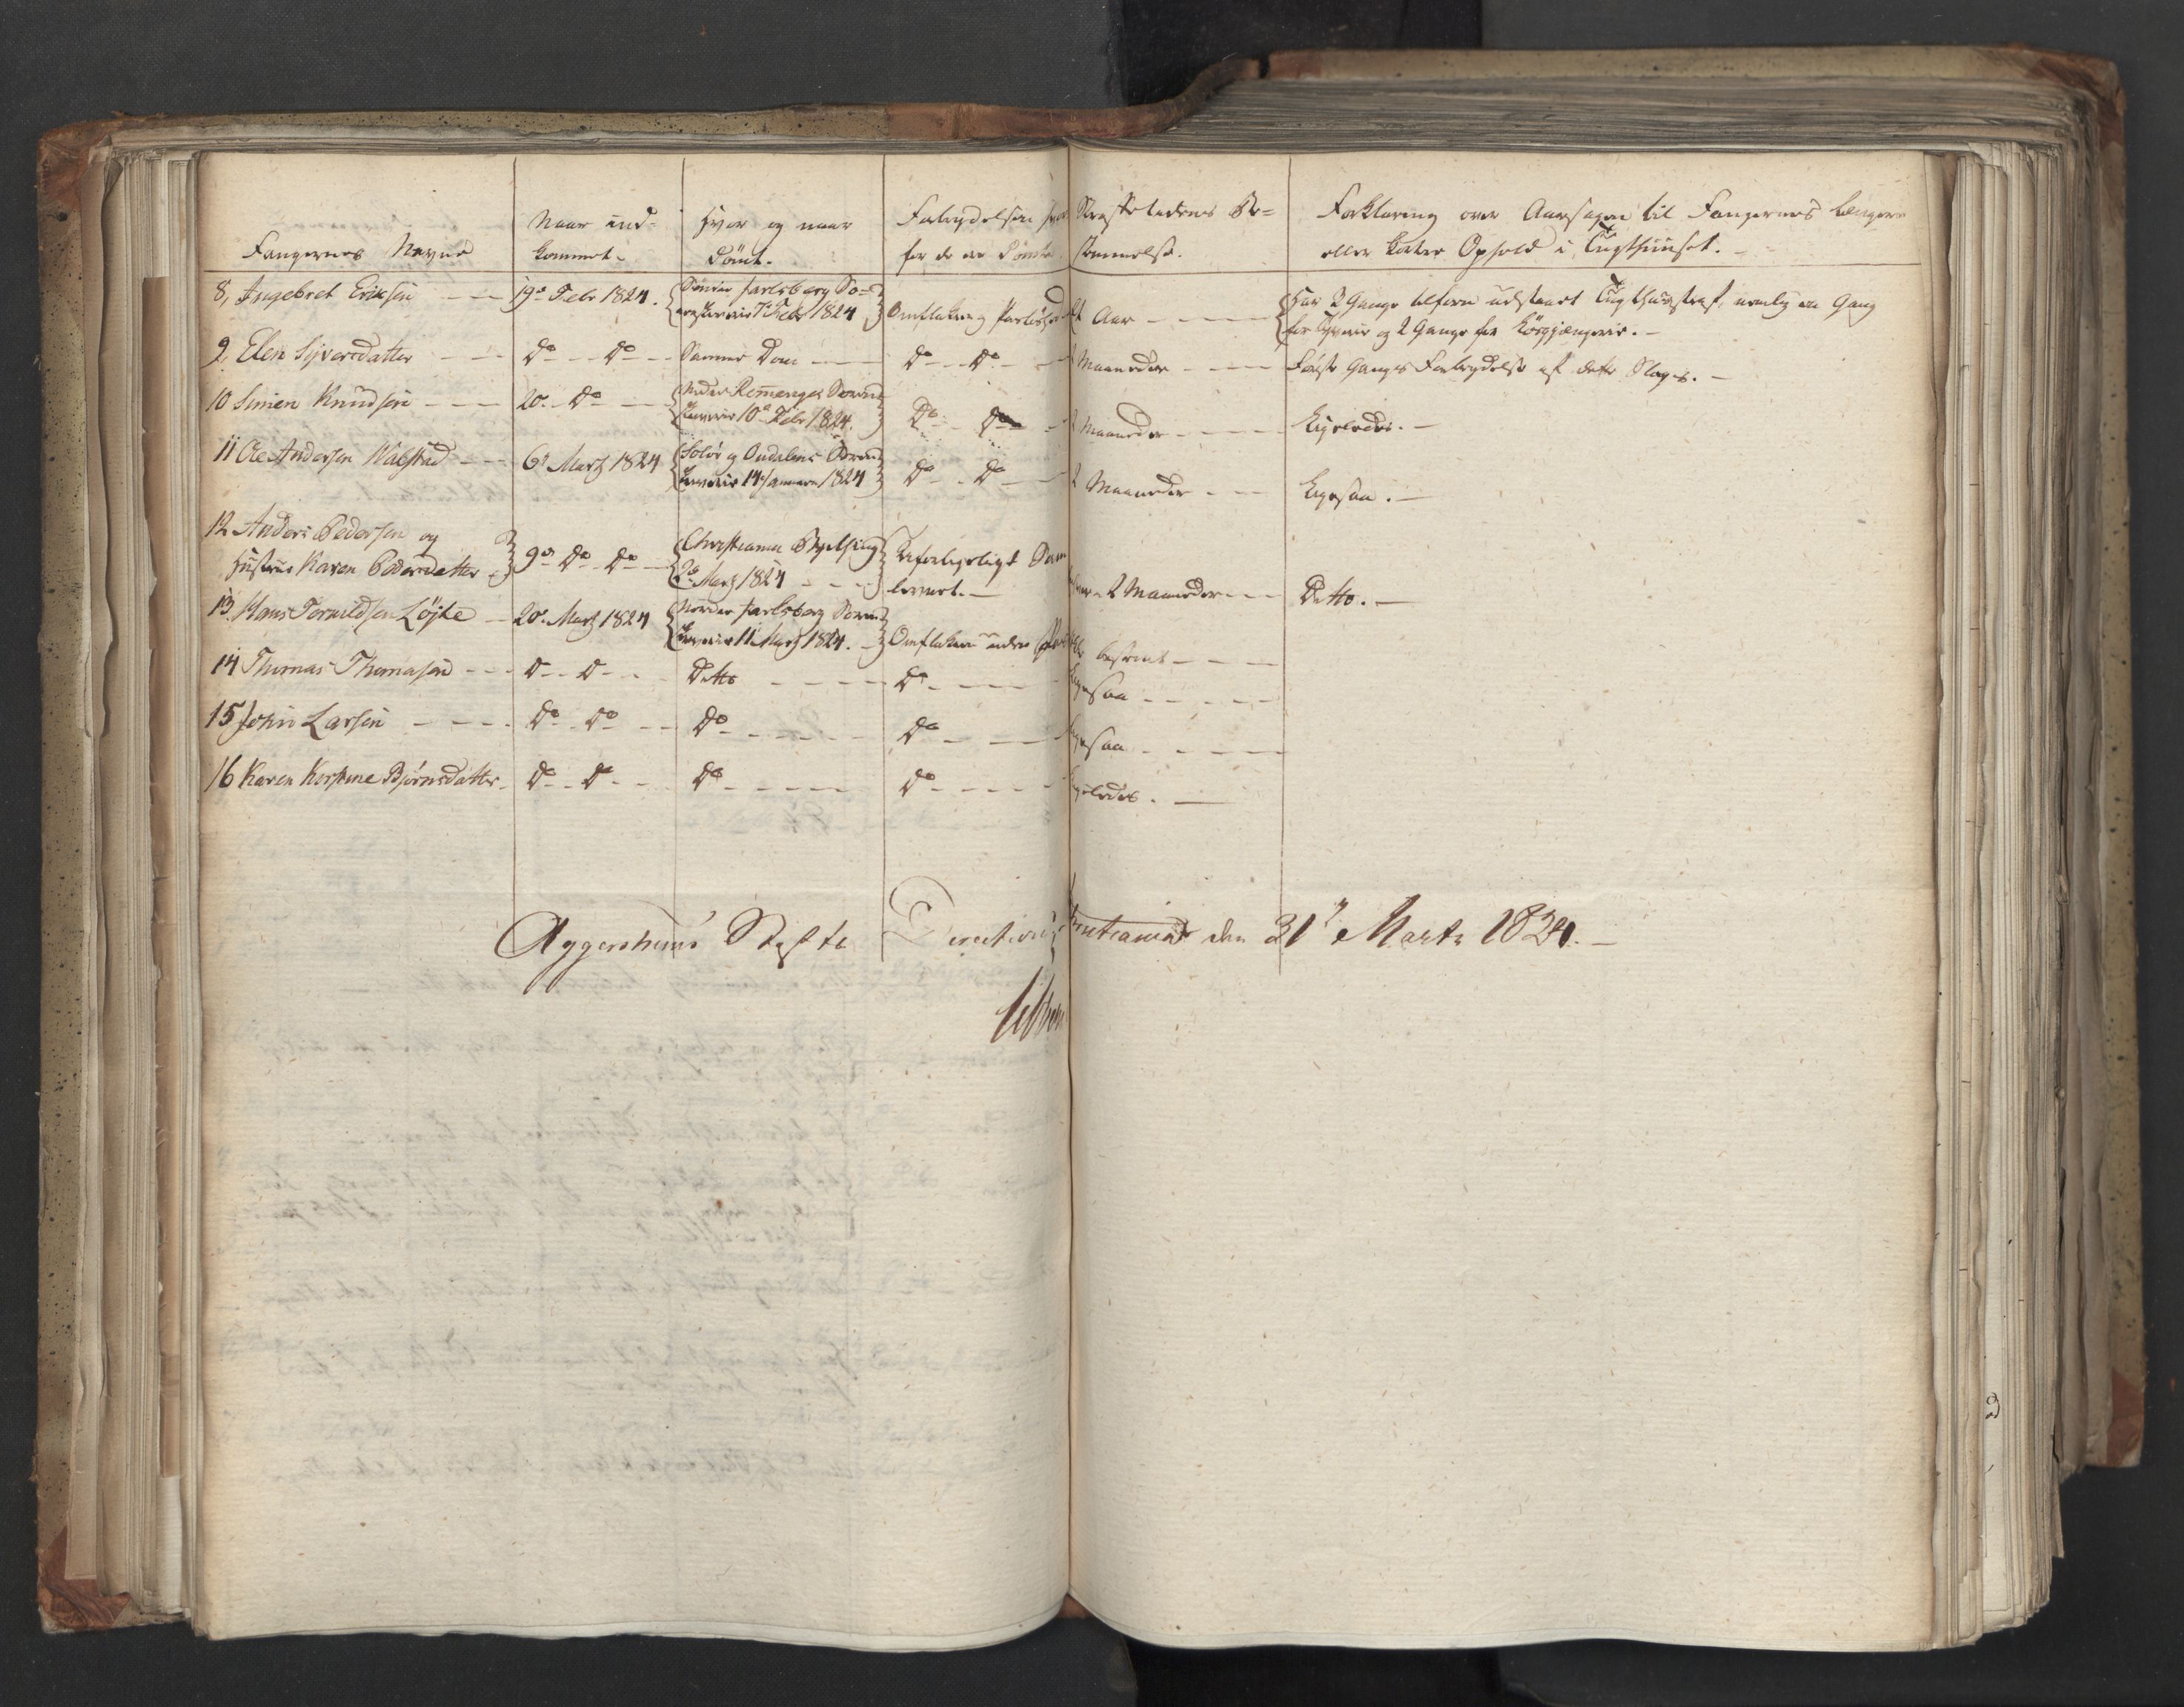 Fangernes Navne
Naar ind-
kommet.
Hvor og naar
dömt.
Forbrydelsen
for de ere Dömte
Straffetidens Be-
stemmelse.
Forklaring over Aarsagen til Fangernes længere
eller kortere Ophold i Tugthuuset.
8, Ingebret Eriksen - - 19de Febr 1824. Sönder Jarlsberg So-
renskriverie 7de Febr 1824 Omflakken og Aar - - - -
Har 2 Gange tilforn udstaaet Tugthuusstraf, nemlig en Gang
for og 2 Gange for Lösgjængerie. -
9. Elen Syversdatter - - Do - - Do - - Samme Dom - - Do - - Do - Maaneder - - - Første Gangs Forbrydelse af dette Slags. -
10 Simen Knudsen - - - 20de Do - Neder Romerriges Soren-
skriverie 10de Febr 1824. Do - Do - 2 Maaneder - - - - Ligeledes. -
11 Ole Andersen Walstad - - 6te Marz 1824 Solör og Oudalens Soren-
skriverie 14 Januar 1824 Do - - Do - 2 Maaneder - - - Ligesaa. -
12 Anders Pedersen og
Hustrue Karen Pedersdatter 9de Do - Do - Christiania
2de Marz 1824 - - -
levnet. - 2 Maaneder - - Ditto. -
13. Hans Torvildsen Löjte - 20de Marz 1824 Nordre Jarlsberg Soren-
skriverie 11 Marz 1824. - Omflakken uden bestemt - - -
14 Thomas Thomasen - - - Do - - Do - - Ditto - - - Do - - - Ligesaa - - - -
15 John Larsen - - - - Do - - Do - - Do - - - - Do - - - Ligesaa - - - -
16 Karen Kirstine Björnsdatter - Do - - Do - - Do - - - - Do - - - - Ligeledes. -
Aggershuus Stifts Direction, Christiania den 31te Marts 1824. -